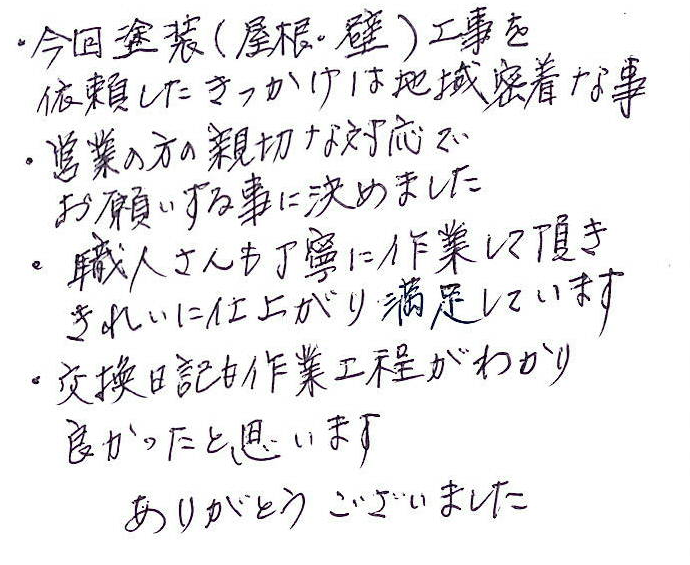 ・今回塗装(屋根・壁)工事を
依頼したきっかけは地域密着な事
・営業の方の親切な対応で
お願いする事に決めました
・職人さんも丁寧に作業して頂き
きれいに仕上がり満足しています
・交換日記も作業工程がわかり
良かったと思います
ありがとうございました